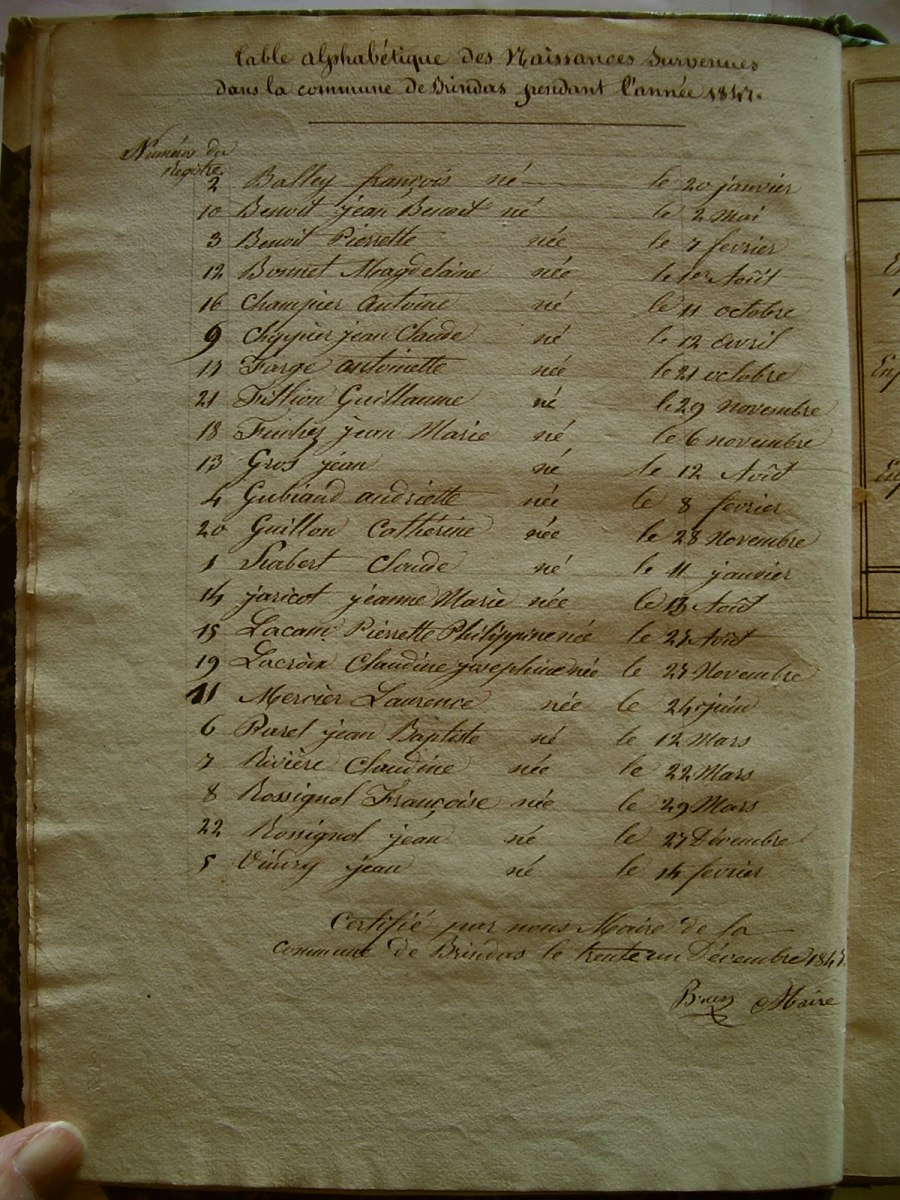 Table alphabétique des Naissances Survenues
dans la commune de Brindas pendant l'année 1847.
Numéro du
Registre
2 Balley françois né le 20 janvier
10 Benoit jean Benoit né le 2 Mai
3 Benoit Pierrette née le 7 fevrier
12 Bonnet Magdelaine née le 1er Août
16 Champier Antoine né le 11 octobre
9 Chippier jean Claude né le 12 avril
17 Farge antoinette née le 21 octobre
21 Fillion Guillaume né le 29 novembre
18 Fuchez jean Marie né le 6 novembre
13 Gros jean né le 12 Août
4 andriette née le 8 fevrier
20 Guillon Cathérine née le 28 Novembre
1 Claude né le 11 janvier
14 jaricot jeanne Marie née le 13 Août
15 Lacam Pierrette Philippine née le 27 Août
19 Lacroix Claudine josephine née le 27 Novembre
11 Mercier Laurence née le 24 juin
6 jean Baptiste né le 12 Mars
7 Rivière Claudine née le 22 Mars
8 Rossignol Françoise née le 29 Mars
22 Rossignol jean né le 27 Décembre
5 Vindry jean né le 14 fevrier
Certifié par nous Maire de la
commune de Brindas le trente un Décembre 1847
Maire